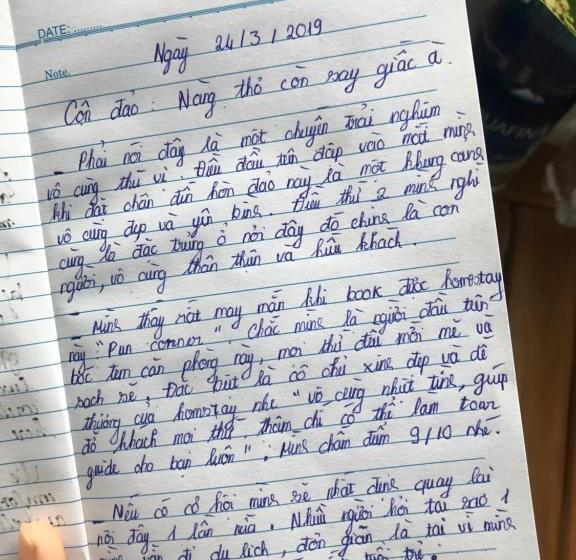 DATE: ........
Note.
Ngày 24/3/2019
Côn đảo: Nàng thỏ còn say giấc à.
- Phải nói đây là một chuyến trải nghiệm
vô cùng thú vị. Điều đầu tiên đập vào mắt mình
khi đặt chân đến hòn đảo này là một khung cảnh
vô cùng đẹp và yên bình. Điều thứ 2 mình nghĩ
cũng là đặc trưng ở nơi đây đó chính là con
người, vô cùng thân thiện và hiếu khách.
- Mình thấy rất may mắn khi book được homestay
này "Pun corner" chắc mình là người đầu tiên
bóc tem căn phòng này, mọi thứ đều mới mẻ và
sạch sẽ, Đặc biệt là cô chủ xinh đẹp và dễ
thương của homestay nhé "vô cùng nhiệt tình, giúp
đỡ khách mọi thứ, thậm chí có thể làm tour
guide cho bạn luôn", Mình chấm điểm 9/10 nhé.
- Nếu có cơ hội mình sẽ nhất định quay lại
nơi đây 1 lần nữa. Nhiều người hỏi tại sao 1
đi du lịch, đơn giản là tại vì mình